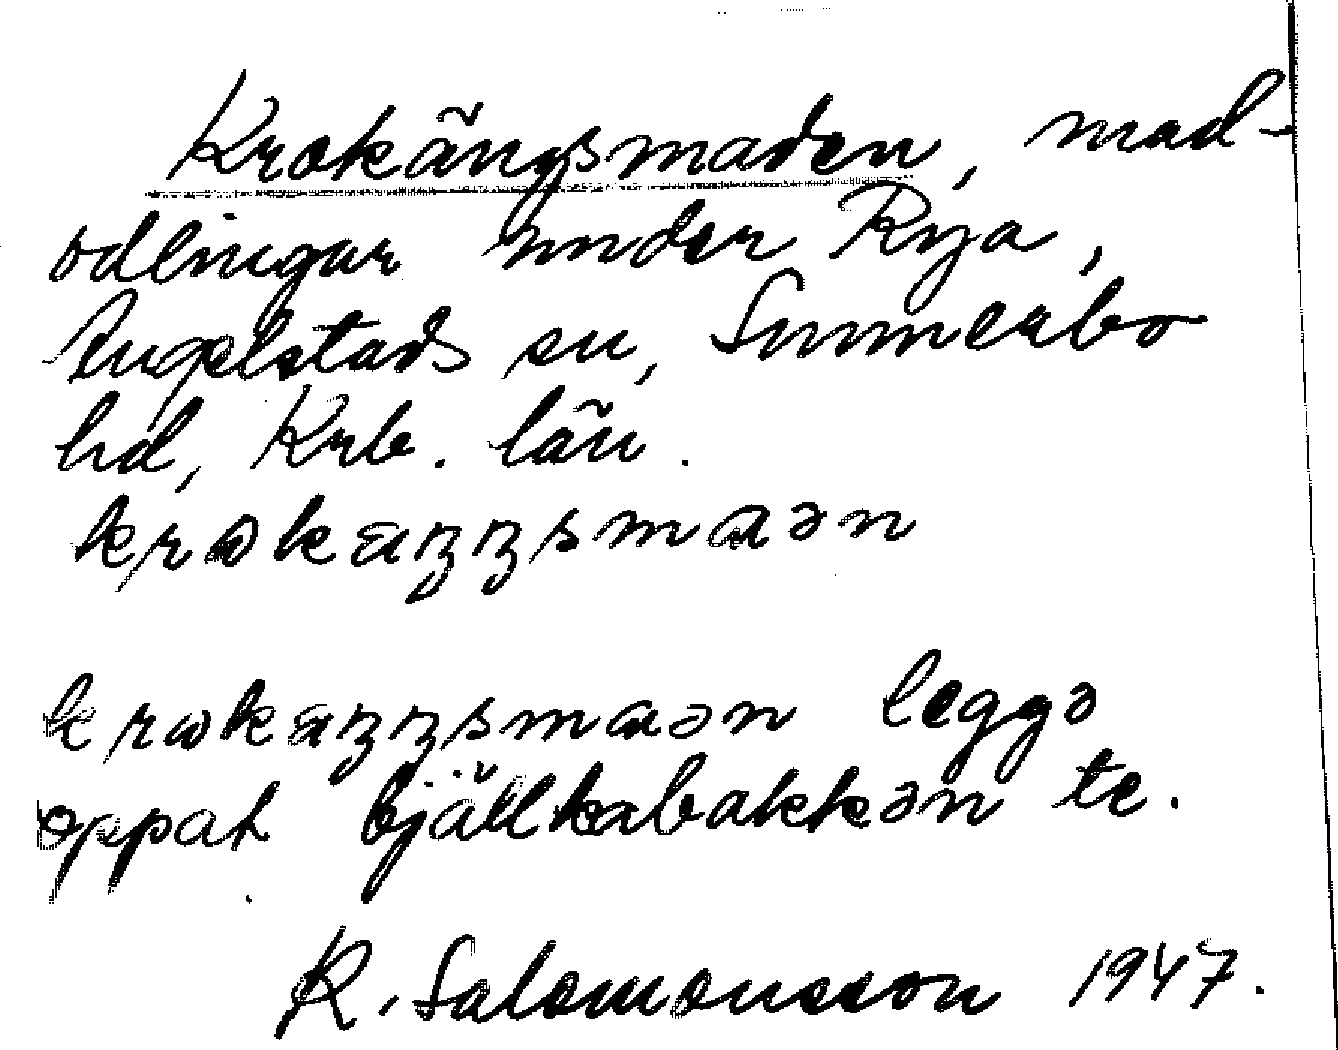 Krokängsmaden, mad-
odlingar under Rya,
Angelstads sn, Sunnerbo
hd, Krb. län.
krokaʒʒsmaən
krokaʒʒsmaən leggə
oppat bjällkabakkən te.
R. Salomonsson 1947.